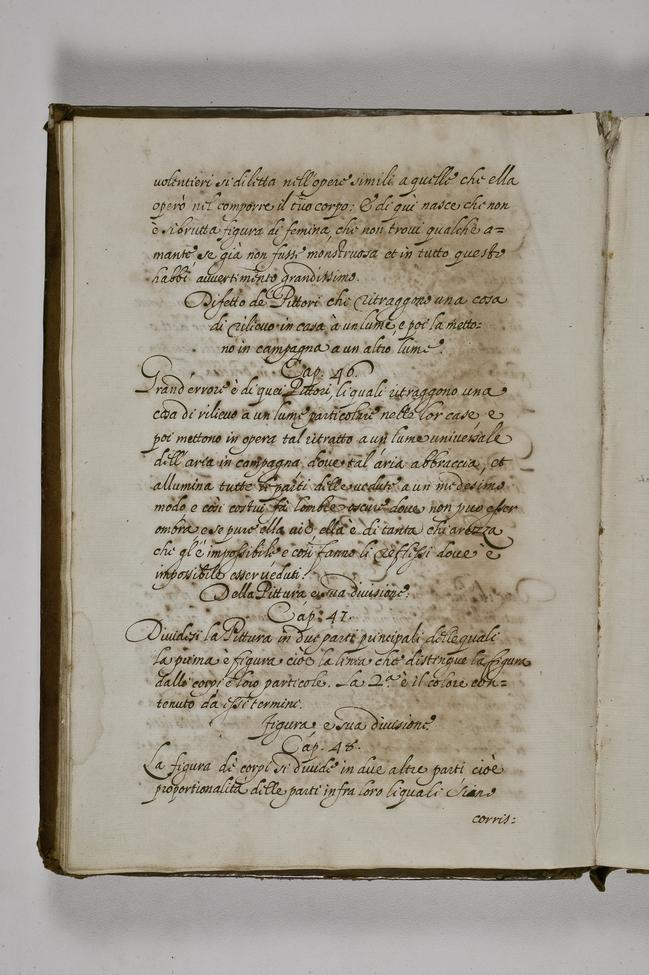 uolentieri si diletta nell'opere simili a quelle che ella
operò nel comporre il tuo corpo; E di qui nasce che non
è si brutta figura di femina, che non troui qualche a=
mante se già non fusse monstruosa et in tutto questo
habbi auuertimento grandissimo.
Difetto de Pittori che ritraggono una cosa
di rilieuo in casa à un lume, e poi la metto=
no in campagna a un altro lume.
Cap. 46.
Grand'errore è di quei Pittori, li quali ritraggono una
cosa di rilieuo a un lume particolare nelle lor case e
poi mettono in opera tal ritratto a un lume uniuersale
dell'aria in campagna, doue tal'aria abbraccia, et
allumina tutte le parti delle uedute a un medesimo
modo e così costui fa l'ombre oscure doue non puo esser
ombra e se pure ella ui è ella è di tanta chiarezza
che gl'è impossibile e così fanno li reflessi doue è
impossibile esser ueduti.
Della Pittura e sua diuisione.
Cap. 47.
Diuidesi la Pittura in due parti principali delle quali
la prima è figura cioè la linea che distingue la figura
dalli corpi e loro particole. La 2.ª è il colore con=
tenuto da essi termini.
Figura e sua diuisione.
Cap. 48.
La figura de corpi si diuide in due altre parti cioè
proportionalità delle parti infra loro li quali siano
corris: